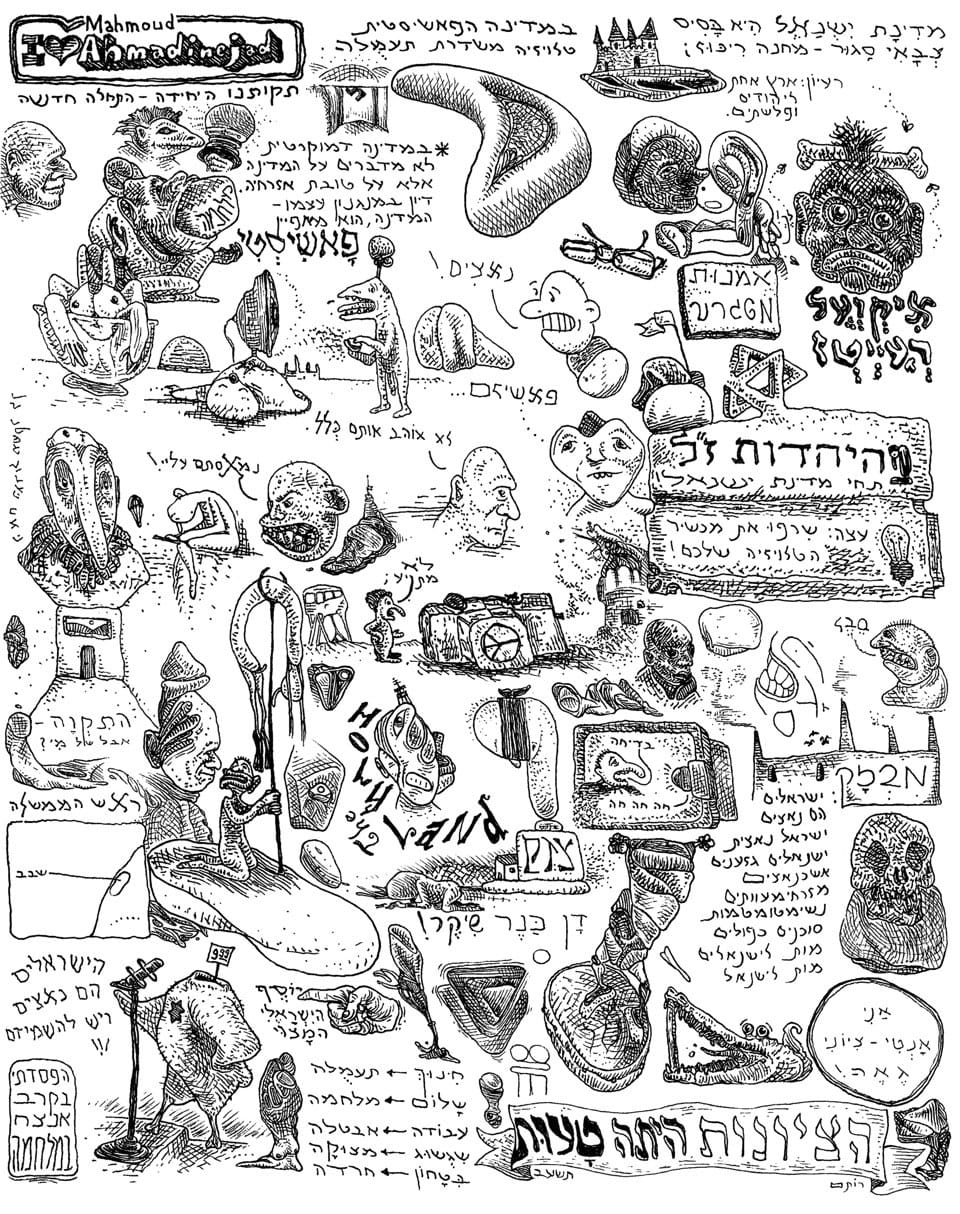 Mahmoud
I ♥ Ahmadinejad
תקותנו היחידה - התחלה חדשה
במדינה הפאשיסטית
טלויזיה משדרת תעמלה.
מדינת ישראל היא בסיס
צבאי סגור - מחנה ריכוז;
רעיון: ארץ אחת
ליהודים
ופלשתים.
*במדינה דמוקרטית
לא מדברים על המדינה
אלא על טובת אזרחיה.
דיון במנגנון עצמו -
המדינה, הוא מאפיין
פָאשִיסְטִי
נאצים!
אמנות
פאשיזם...
לא אוהב אותם כלל.
היהדות ז"ל
תחי מדינת ישראל
עצה: שרפו את מכשיר
הטלויזיה שלכם!
לא
התקוה -
אבל של מי?
HOLY
LAND
בדיחה
חה חה חה
סבל
מבזק:
ישראלים
הם נאצים
ישראל נאצית
ישראלים גזענים
אשכנאצים
מזרחימעוותים
סוכנים כפולים
מות לישראלים
מות לישראל
ראש הממשלה
שבב
דן כנר שיקרן
הישראלים
הם נאצים
ויש להשמידם
יוסף
הישראלי
המצוי
הפסדתי
בקרב
אנצח
במלחמה
חינוך ← תעמלה
שלום ← מלחמה
עבודה ← אבטלה
שגשוג ← מצוקה
בטחון ← חרדה
אני
אנטי - ציוני
גאה.
הציונות היתה טעות
תשע"ב
רותם